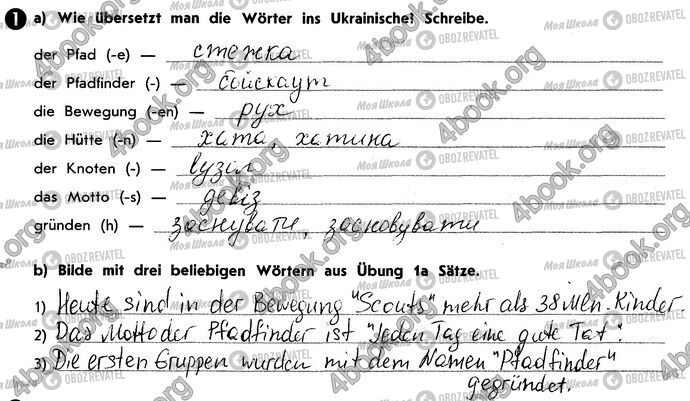 1 a) Wie übersetzt man die Wörter ins Ukrainische? Schreibe.
der Pfad (-e) — стежка
der Pfadfinder (-) — бойскаут
die Bewegung (-en) — рух
die Hütte (-n) — хата, хатина
der Knoten (-) — вузол
das Motto (-s) — девіз
gründen (h) — заснувати, засновувати
b) Bilde mit drei beliebigen Wörtern aus Übung 1a Sätze.
1) Heute sind in der Bewegung "Scouts" mehr als 38 Mln. Kinder
2) Das Motto der Pfadfinder ist "Jeden Tag eine gute Tat".
3) Die ersten Gruppen wurden mit dem Namen "Pfadfinder"
gegründet.